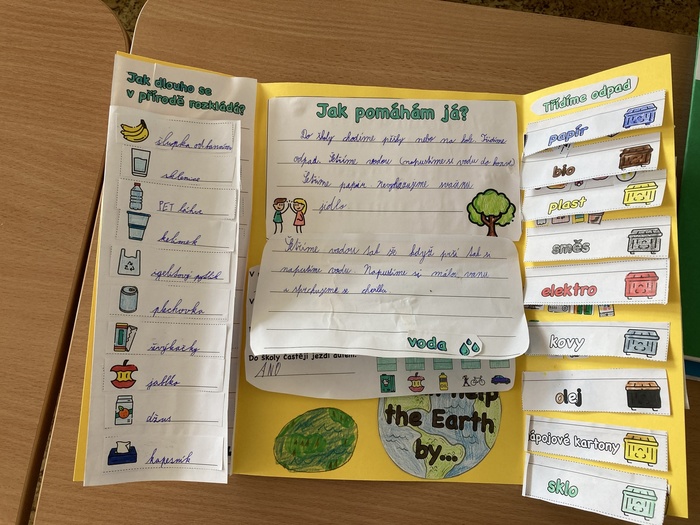 Jak dlouho se
v přírodě rozkládá?
slupka od banánu
sklenice
PET láhve
kelímek
igelitový pytlík
plechovka
žvýkačky
jablko
džus
kapesník
Jak pomáhám já?
Do školy chodíme pěšky nebo na kole. Třídíme
odpad. Šetříme vodou (napustíme si vodu do
Šetříme papír. Nevyhazujeme svačinu
jídlo
Šetříme vodou tak že když prší tak si
napustíme vodu. Napustíme si málo vanu
a sprchujeme se chvilku
voda
Do školy častěji jezdí autem.
ANO
help
the Earth
by...
Třídíme odpad
papír
bio
plast
směs
elektro
kovy
olej
ápojové kartony
sklo